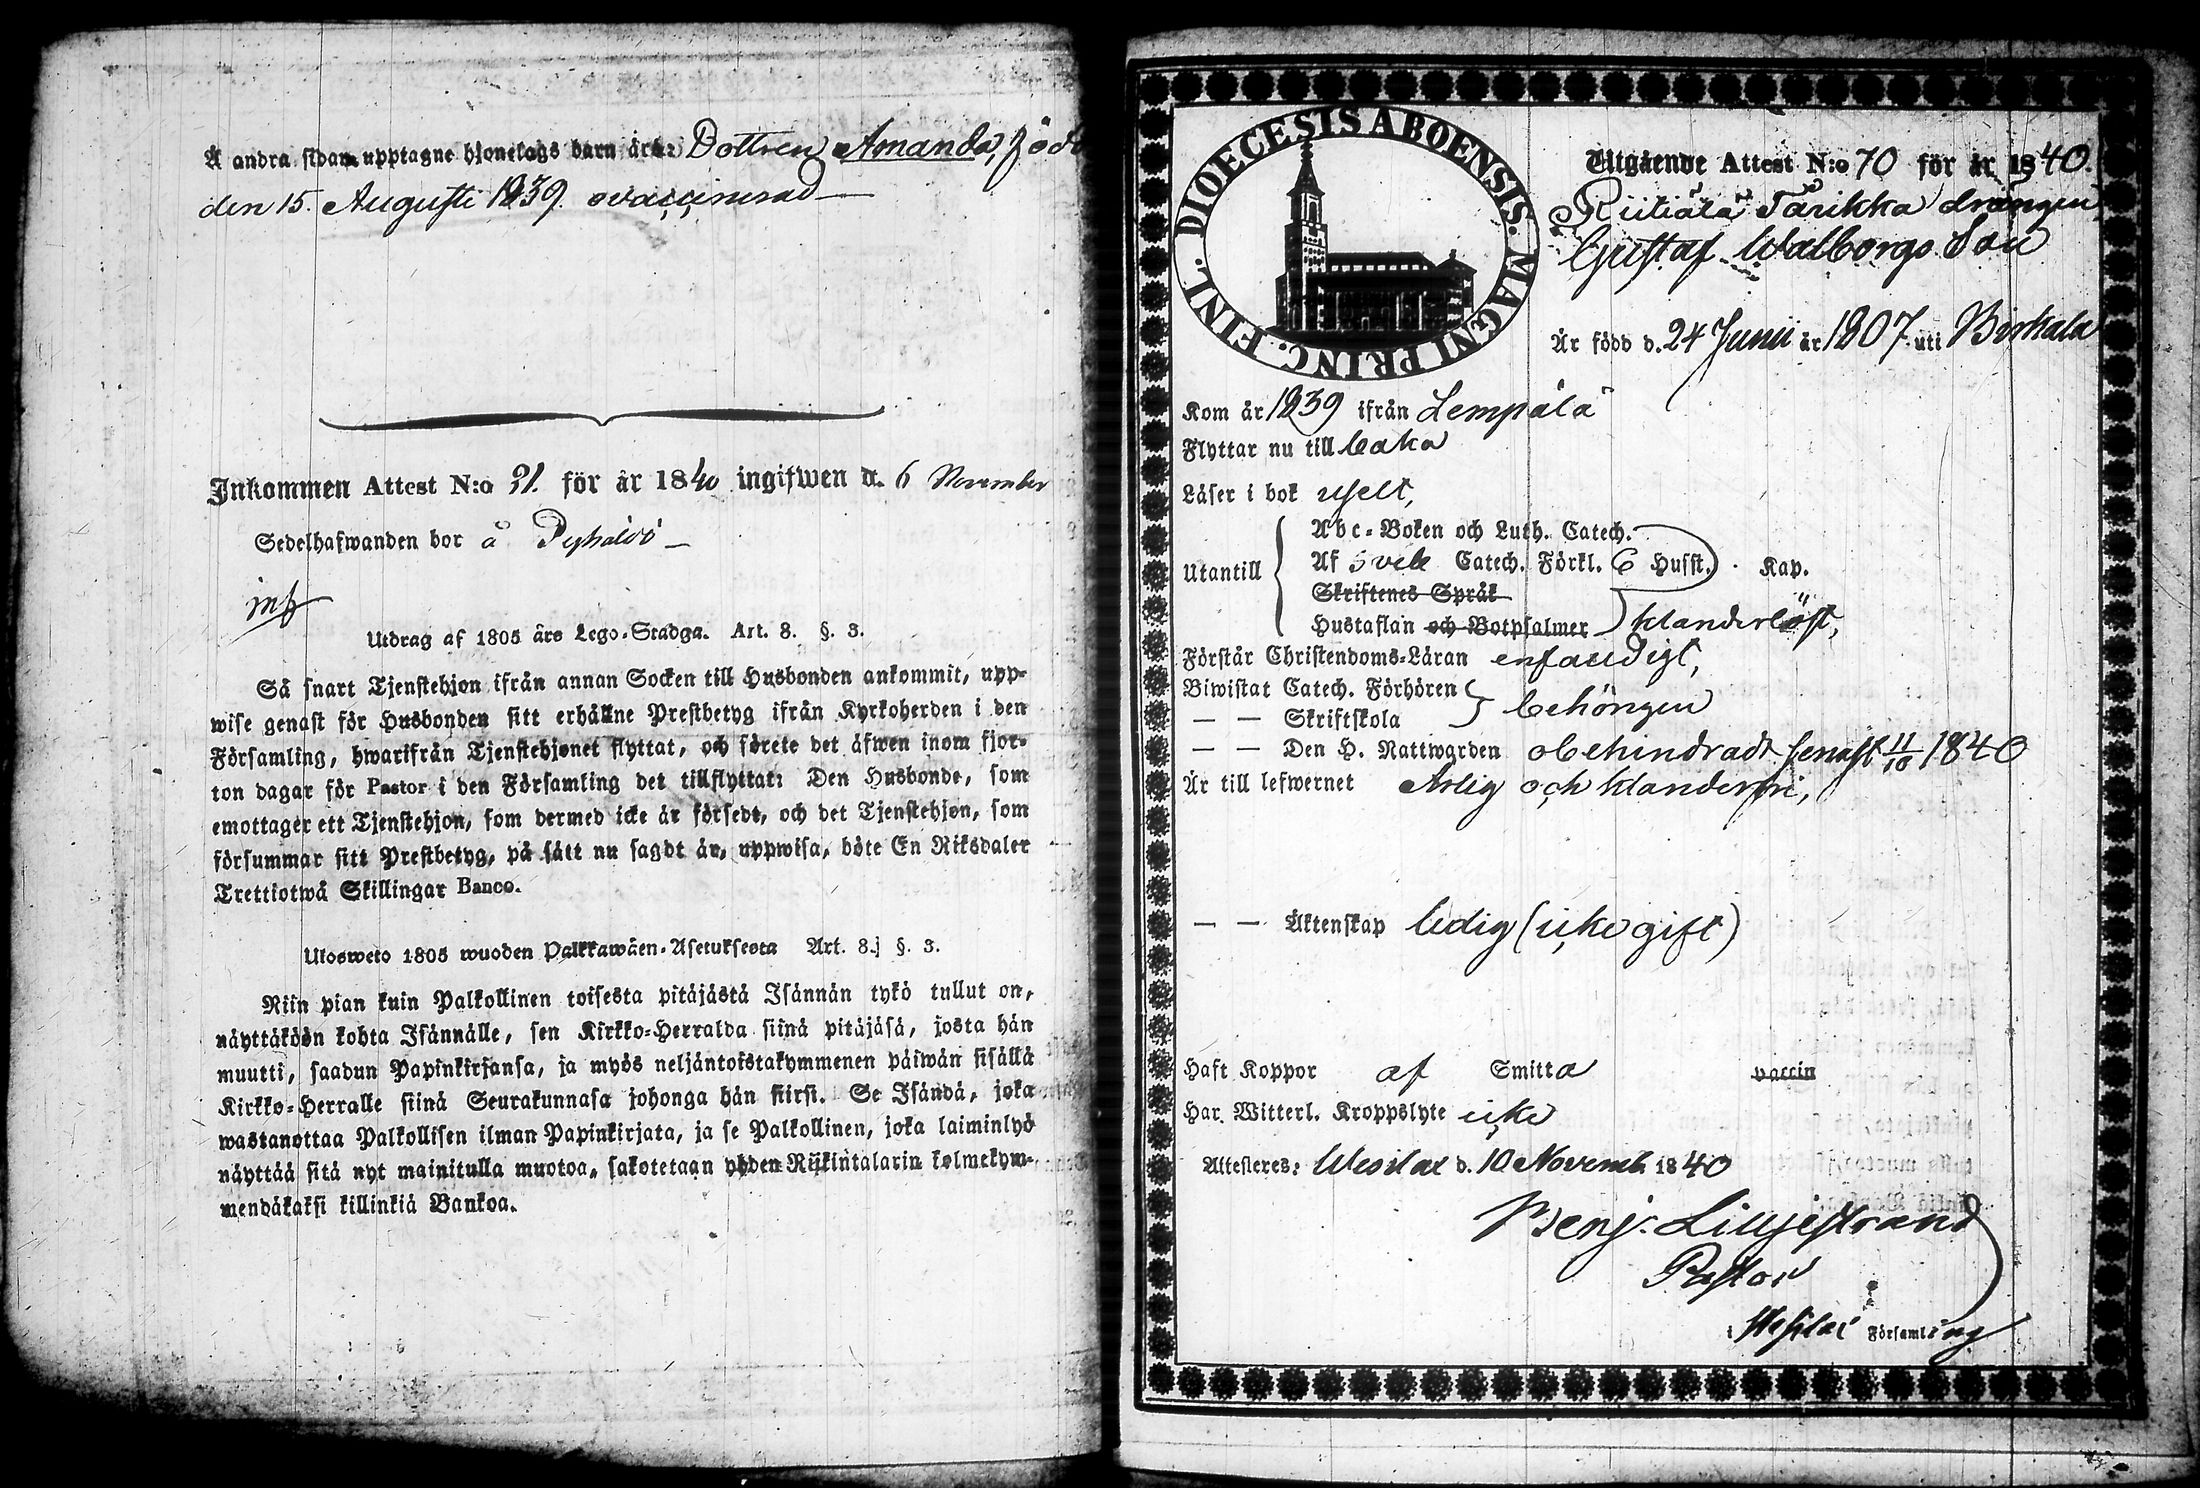 Å andra sidan upptagne hjonelags barn äro: Dottren Amanda, född
den 15. Augusti 1839. ovaccinerad
Inkommen Attest N:o 31. för år 1840 ingifwen d. 6 November
Sedelhafwanden bor å
Utdrag af 1805 års Lego-Stadga. Art. 8. §. 3.
Så snart Tjenstehjon ifrån annan Socken till Husbonden ankommit, upp-
wise genast för Husbonden sitt erhållne Prestbetyg ifrån Kyrkoherden i den
Församling, hwarifrån Tjenstehjonet flyttat, och förete det äfwen inom fjor-
ton dagar för Pastor i den Församling det tillflyttat: Den Husbonde, som
emottager ett Tjenstehjon, som dermed icke är försedt, och det Tjenstehjon, som
försummar sitt Prestbetyg, på sätt nu sagdt är, uppwisa, böte En Riksdaler
Trettiotwå Skillingar Banco.
Ulosweto 1805 wuoden Palkkawäen-Asetuksesta Art. 8. §. 3.
Niin pian kuin Palkollinen toisesta pitäjästä Isännän tykö tullut on,
näyttäköön kohta Isännälle, sen Kirkko-Herralda siinä pitäjäsä, josta hän
muutti, saadun Papinkirjansa, ja myös neljäntoistakymmenen päiwän sisällä
Kirkko-Herralle siinä Seurakunnasa johonga hän siirsi. Se Isändä, joka
wastanottaa Palkollisen ilman Papinkirjata, ja se Palkollinen, joka laiminlyö
näyttää sitä nyt mainitulla muotoa, sakotetaan yhden Riikintalarin kolmekym-
mendäkaksi killinkiä Bankoa.
DIOECESIS ABOENSIS. MAGNI PRINC. FINL.
Utgående Attest N:o 70 för år 1840.
Riitiälä Tärikkä drängen
Gustaf Walborgs Son
Är född d. 24 Junii år 1807. uti Birkala
Kom år 1839 ifrån Lempälä
Flyttar nu till
Läser i bok uselt,
Utantill
Abc-Boken och Luth. Catech.
Af Catech. Förkl. 6 Husst. . Kap.
Skriftenes Språk
Hustaflan och Botpsalmer klanderlöst,
Förstår Christendoms-Läran enfaldigt,
Biwistat Catech. Förhören
— — Skriftskola behörigen
— — Den H. Nattwarden obehindradt senast 11/10 1840
Är till lefwernet Ärlig och klanderfri,
— — Äktenskap ledig (icke gift)
Haft Koppor af Smitta vaccin
Har Witterl. Kroppslyte icke
Attesteres: Wesilax d. 10 Novemb. 1840
Benj. Lilljestrand
Pastor
i Wesilax Församling